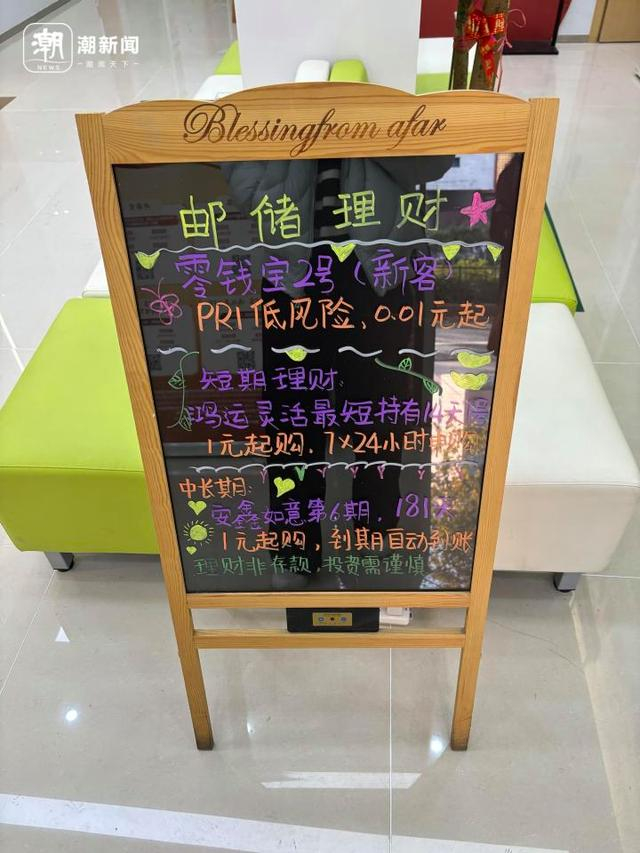 潮 潮新闻
NEWS
Blessingfrom afar
邮储理财
零钱宝2号(新客)
PR1低风险、0.01元起
短期理财:
鸿运灵活最短持有14天
1元起购,7X24小时
中长期:
安鑫如意第6期,181天
1元起购,到期自动到账
理财非存款,投资需谨慎